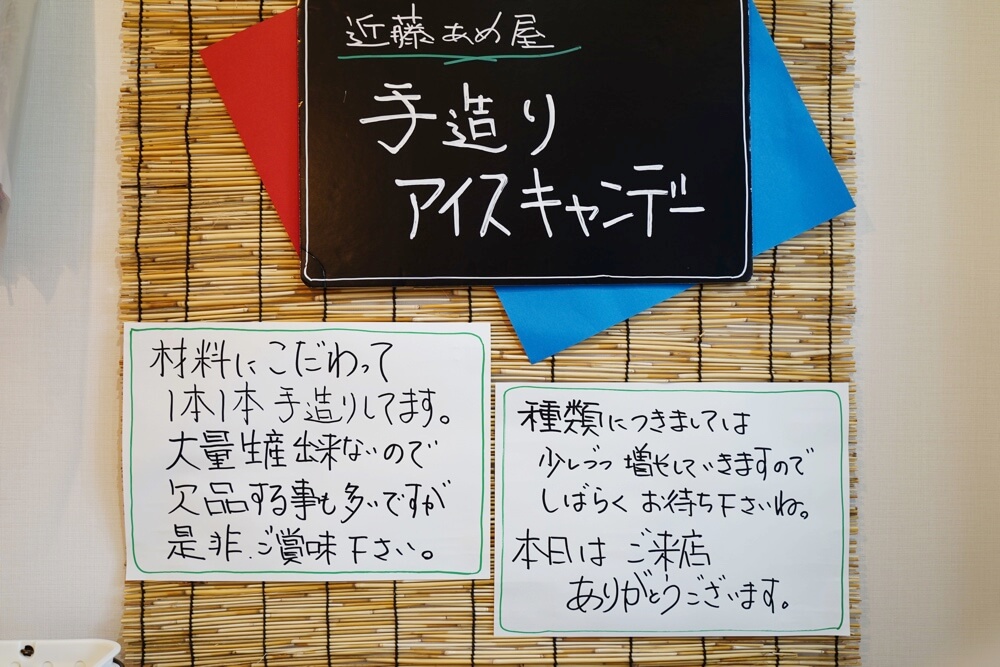 近藤あめ屋
手造り
アイスキャンデー
材料にこだわって
1本1本手造りしてます。
大量生産出来ないので
欠品する事も多いですが
是非、ご賞味下さい。
種類につきましては
少しづつ増やしていきますので
しばらくお待ち下さいね。
本日はご来店
ありがとうございます。